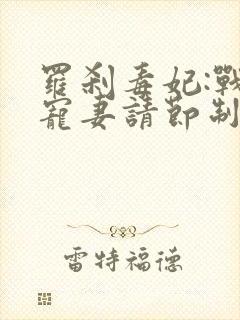 羅剎毒妃:戰
寵妻請節制
雷特福德